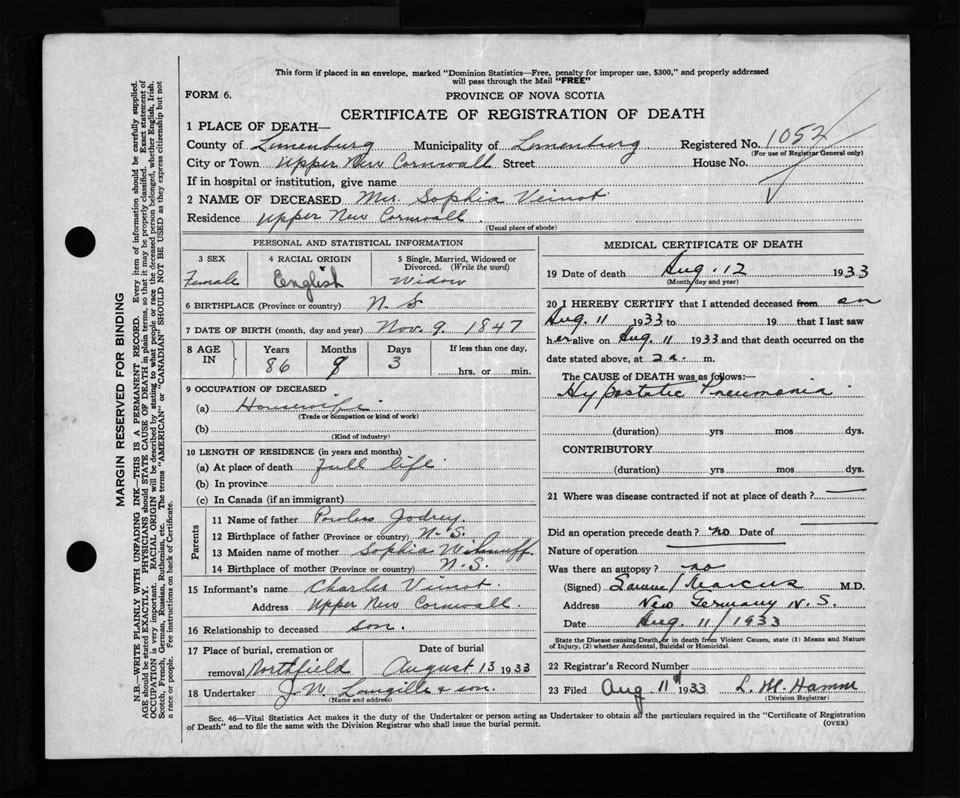 This form if placed in an envelope, marked "Dominion Statistics—Free, penalty for improper use, $300," and properly addressed
will pass through the Mail "FREE"
FORM 6.
PROVINCE OF NOVA SCOTIA
CERTIFICATE OF REGISTRATION OF DEATH
1 PLACE OF DEATH—
County of Lunenburg Municipality of Lunenburg Registered No. 1052
(For use of Registrar General only)
City or Town Upper New Cornwall Street House No.
If in hospital or institution, give name
2 NAME OF DECEASED Mrs Sophia Veinot
Residence Upper New Cornwall
(Usual place of abode)
PERSONAL AND STATISTICAL INFORMATION
3 SEX 4 RACIAL ORIGIN 5 Single, Married, Widowed or
Divorced. (Write the word)
Female English Widow
6 BIRTHPLACE (Province or country) N.S
7 DATE OF BIRTH (month, day and year) Nov. 9. 1847
8 AGE IN Years Months Days If less than one day,
86 9 3 hrs. or min.
9 OCCUPATION OF DECEASED
(a) Housewife
(Trade or occupation or kind of work)
(b)
(Kind of industry)
10 LENGTH OF RESIDENCE (in years and months)
(a) At place of death full life
(b) In province
(c) In Canada (if an immigrant)
Parents
11 Name of father Jodrey
12 Birthplace of father (Province or country) N.S.
13 Maiden name of mother Sophia
14 Birthplace of mother (Province or country) N.S.
15 Informant's name Charles Vinot
Address Upper New Cornwall.
16 Relationship to deceased son.
17 Place of burial, cremation or Date of burial
removal Northfield August 13 1933
18 Undertaker J.N. Langille & son.
(Name and address)
MEDICAL CERTIFICATE OF DEATH
19 Date of death Aug. 12 1933
(Month, day and year)
20 I HEREBY CERTIFY that I attended deceased from on
Aug. 11 1933 to 19 that I last saw
her alive on Aug. 11 1933 and that death occurred on the
date stated above, at 2 a. m.
The CAUSE of DEATH was as follows:—
Hypostatic Pneumonia
(duration) yrs mos dys.
CONTRIBUTORY
(duration) yrs mos dys.
21 Where was disease contracted if not at place of death ?
Did an operation precede death ? no Date of
Nature of operation
Was there an autopsy ? no
(Signed) Samuel Marcus M.D.
Address New Germany N.S.
Date Aug. 11/1933
State the Disease causing Death, or in death from Violent Causes, state (1) Means and Nature
of Injury, (2) whether Accidental, Suicidal or Homicidal.
22 Registrar's Record Number
23 Filed Aug 11th 1933 L. M. Hamm
(Division Registrar)
Sec. 46—Vital Statistics Act makes it the duty of the Undertaker or person acting as Undertaker to obtain all the particulars required in the "Certificate of Registration
of Death" and to file the same with the Division Registrar who shall issue the burial permit.
(OVER)
MARGIN RESERVED FOR BINDING
N.B.—WRITE PLAINLY WITH UNFADING INK—THIS IS A PERMANENT RECORD. Every item of information should be carefully supplied.
AGE should be stated EXACTLY. PHYSICIANS should STATE CAUSE OF DEATH in plain terms, so that it may be properly classified. Exact statement of
OCCUPATION is very important. RACIAL ORIGIN will be described by stating to what people or race the deceased person belonged, whether English, Irish,
Scotch, French, German, Russian, Ruthenian, etc. The terms "AMERICAN" or "CANADIAN" SHOULD NOT BE USED as they express citizenship but not
a race or people. Fee instructions on back of Certificate.